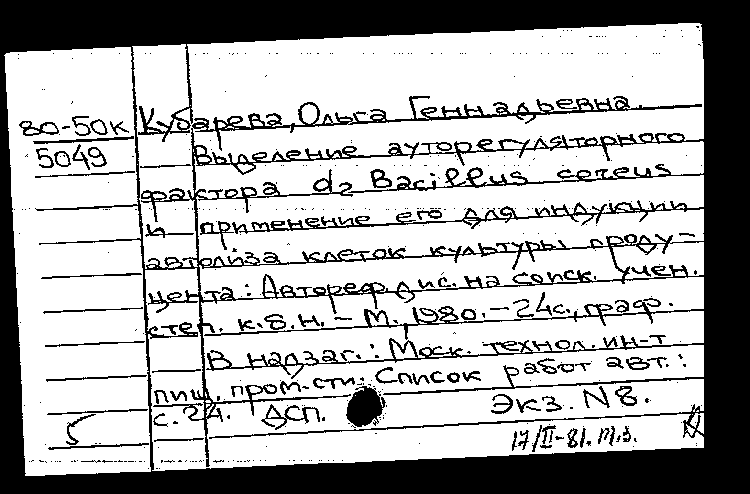 80-50к Кубарева, Ольга Геннадьевна.
5049 Выделение ауторегуляторного
фактора d2 Bacillus cereus
и применение его для индукции
автолиза клеток культуры проду-
цента: Автореф. дис. на соиск. учен.
степ. к.б.н. – М., 1980. – 24с., граф.
В надзаг.: Моск. технол. ин-т
пищ. пром-сти. Список работ авт.:
с. 24. ДСП. Экз. N8.
5 17/II-81. т.з.